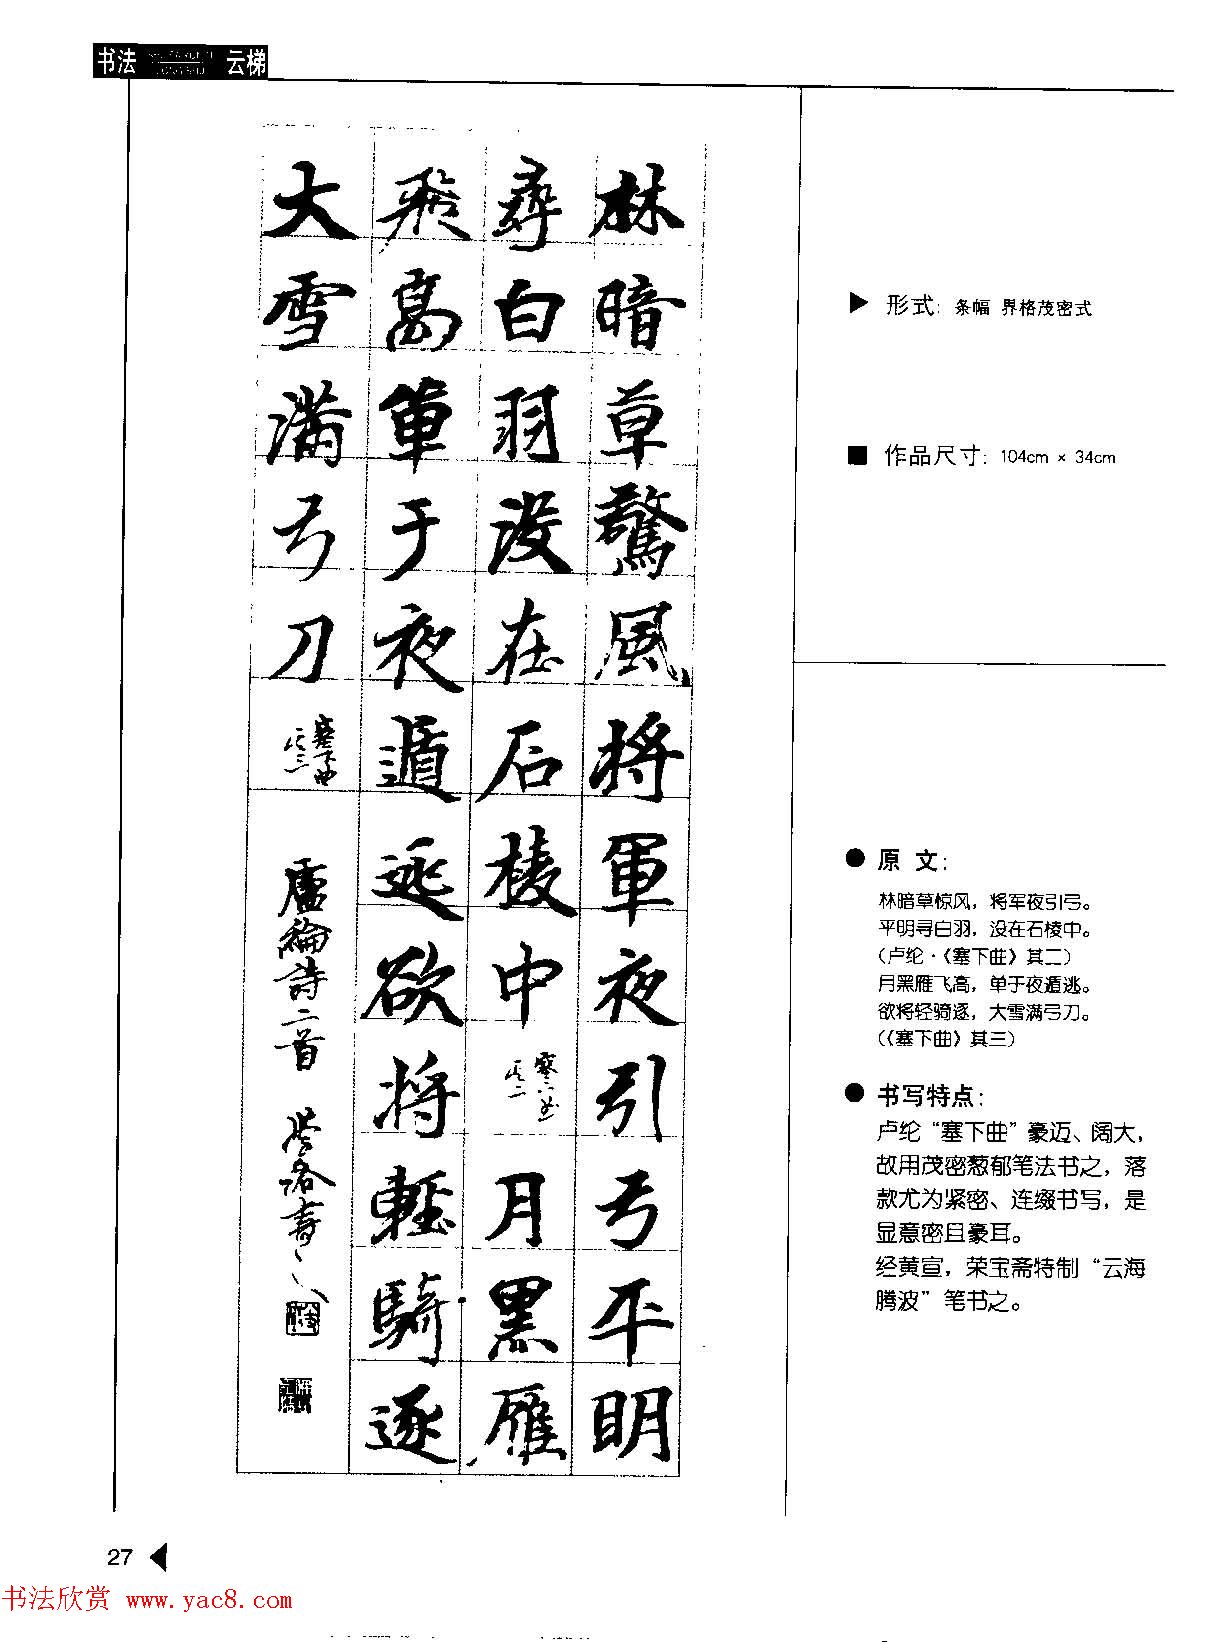 书法 云梯
林暗草驚風將軍夜引弓平明
尋白羽没在石棱中 塞下曲 其二 月黑雁
飛高單于夜遁逃欲將輕騎逐
大雪滿弓刀 塞下曲 其三
盧綸詩二首
▶ 形式: 条幅 界格茂密式
■ 作品尺寸: 104cm × 34cm
● 原 文:
林暗草惊风，将军夜引弓。
平明寻白羽，没在石棱中。
(卢纶·《塞下曲》其二)
月黑雁飞高，单于夜遁逃。
欲将轻骑逐，大雪满弓刀。
(《塞下曲》其三)
● 书写特点:
卢纶“塞下曲”豪迈、阔大，
故用茂密葱郁笔法书之，落
款尤为紧密、连缀书写，是
显意密且豪耳。
经黄宣，荣宝斋特制“云海
腾波”笔书之。
27
书法欣赏 www.yac8.com